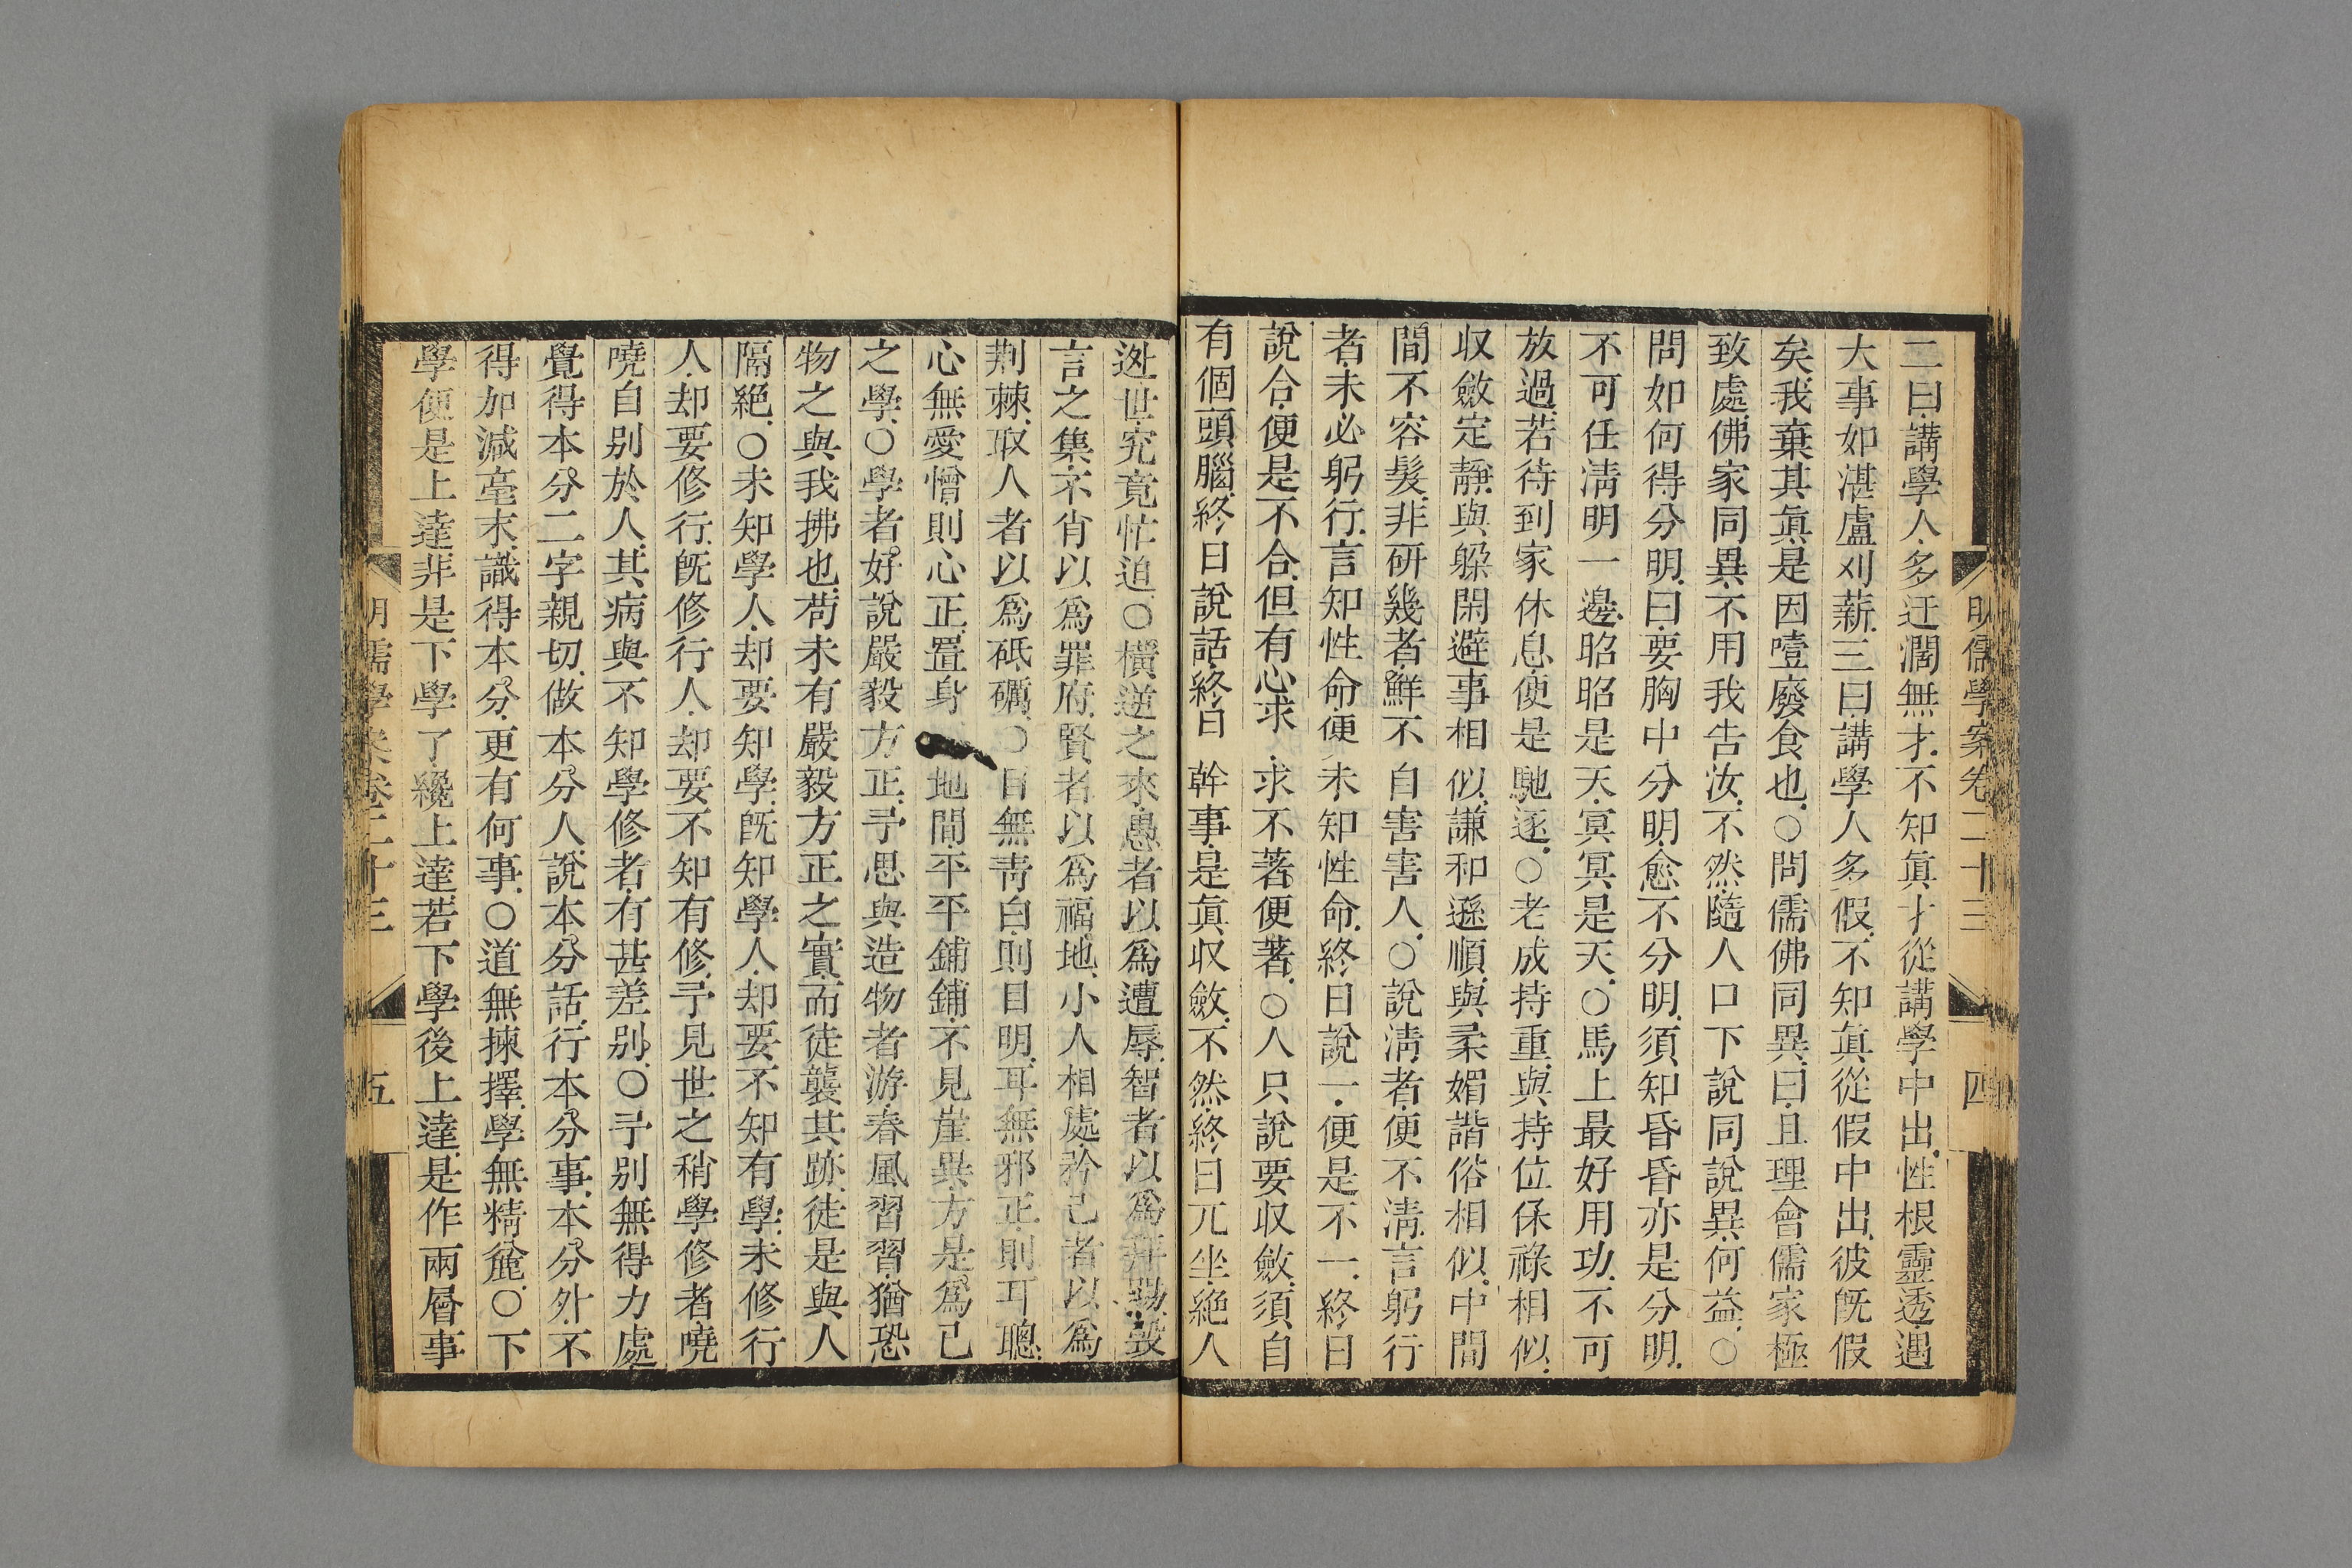 明儒學案卷二十三
四
二曰講學人多迂濶無才不知眞才從講學中出性根靈透遇
大事如湛盧刈薪三曰講學人多假不知眞從假中出彼旣假
矣我棄其眞是因噎廢食也○問儒佛同異曰且理會儒家極
致處佛家同異不用我告汝不然隨人口下說同說異何益○
問如何得分明曰要胸中分明愈不分明須知昏昏亦是分明
不可任淸明一邊昭昭是天冥冥是天○馬上最好用功不可
放過若待到家休息便是馳逐○老成持重與持位保祿相似
収斂定靜與躱閑避事相似謙和遜順與柔媚諧俗相似中間
間不容髮非研幾者鮮不自害害人○說淸者便不淸言躬行
者未必躬行言知性命便未知性命終日說一便是不一終日
說合便是不合但有心求求不著便著○人只說要収斂須自
有個頭腦終日說話終日幹事是眞収斂不然終日兀坐絶人
迯世究竟忙迫○橫逆之來愚者以爲遭辱智者以爲拜賜毀
言之集不肖以爲罪府賢者以爲福地小人相處矜己者以爲
荆棘取人者以爲砥礪○目無靑白則目明耳無邪正則耳聰
心無愛憎則心正置身 地間平平鋪鋪不見崖異方是爲己
之學○學者好說嚴毅方正予思與造物者游春風習習猶恐
物之與我拂也苟未有嚴毅方正之實而徒襲其跡徒是與人
隔絶○未知學人却要知學旣知學人却要不知有學未修行
人却要修行旣修行人却要不知有修予見世之稍學修者嘵
嘵自别於人其病與不知學修者有甚差别○予别無得力處
覺得本分二字親切做本分人說本分話行本分事本分外不
得加减毫末識得本分更有何事○道無揀擇學無精麄○下
學便是上達非是下學了纔上達若下學後上達是作兩層事
明儒學案卷二十三
五